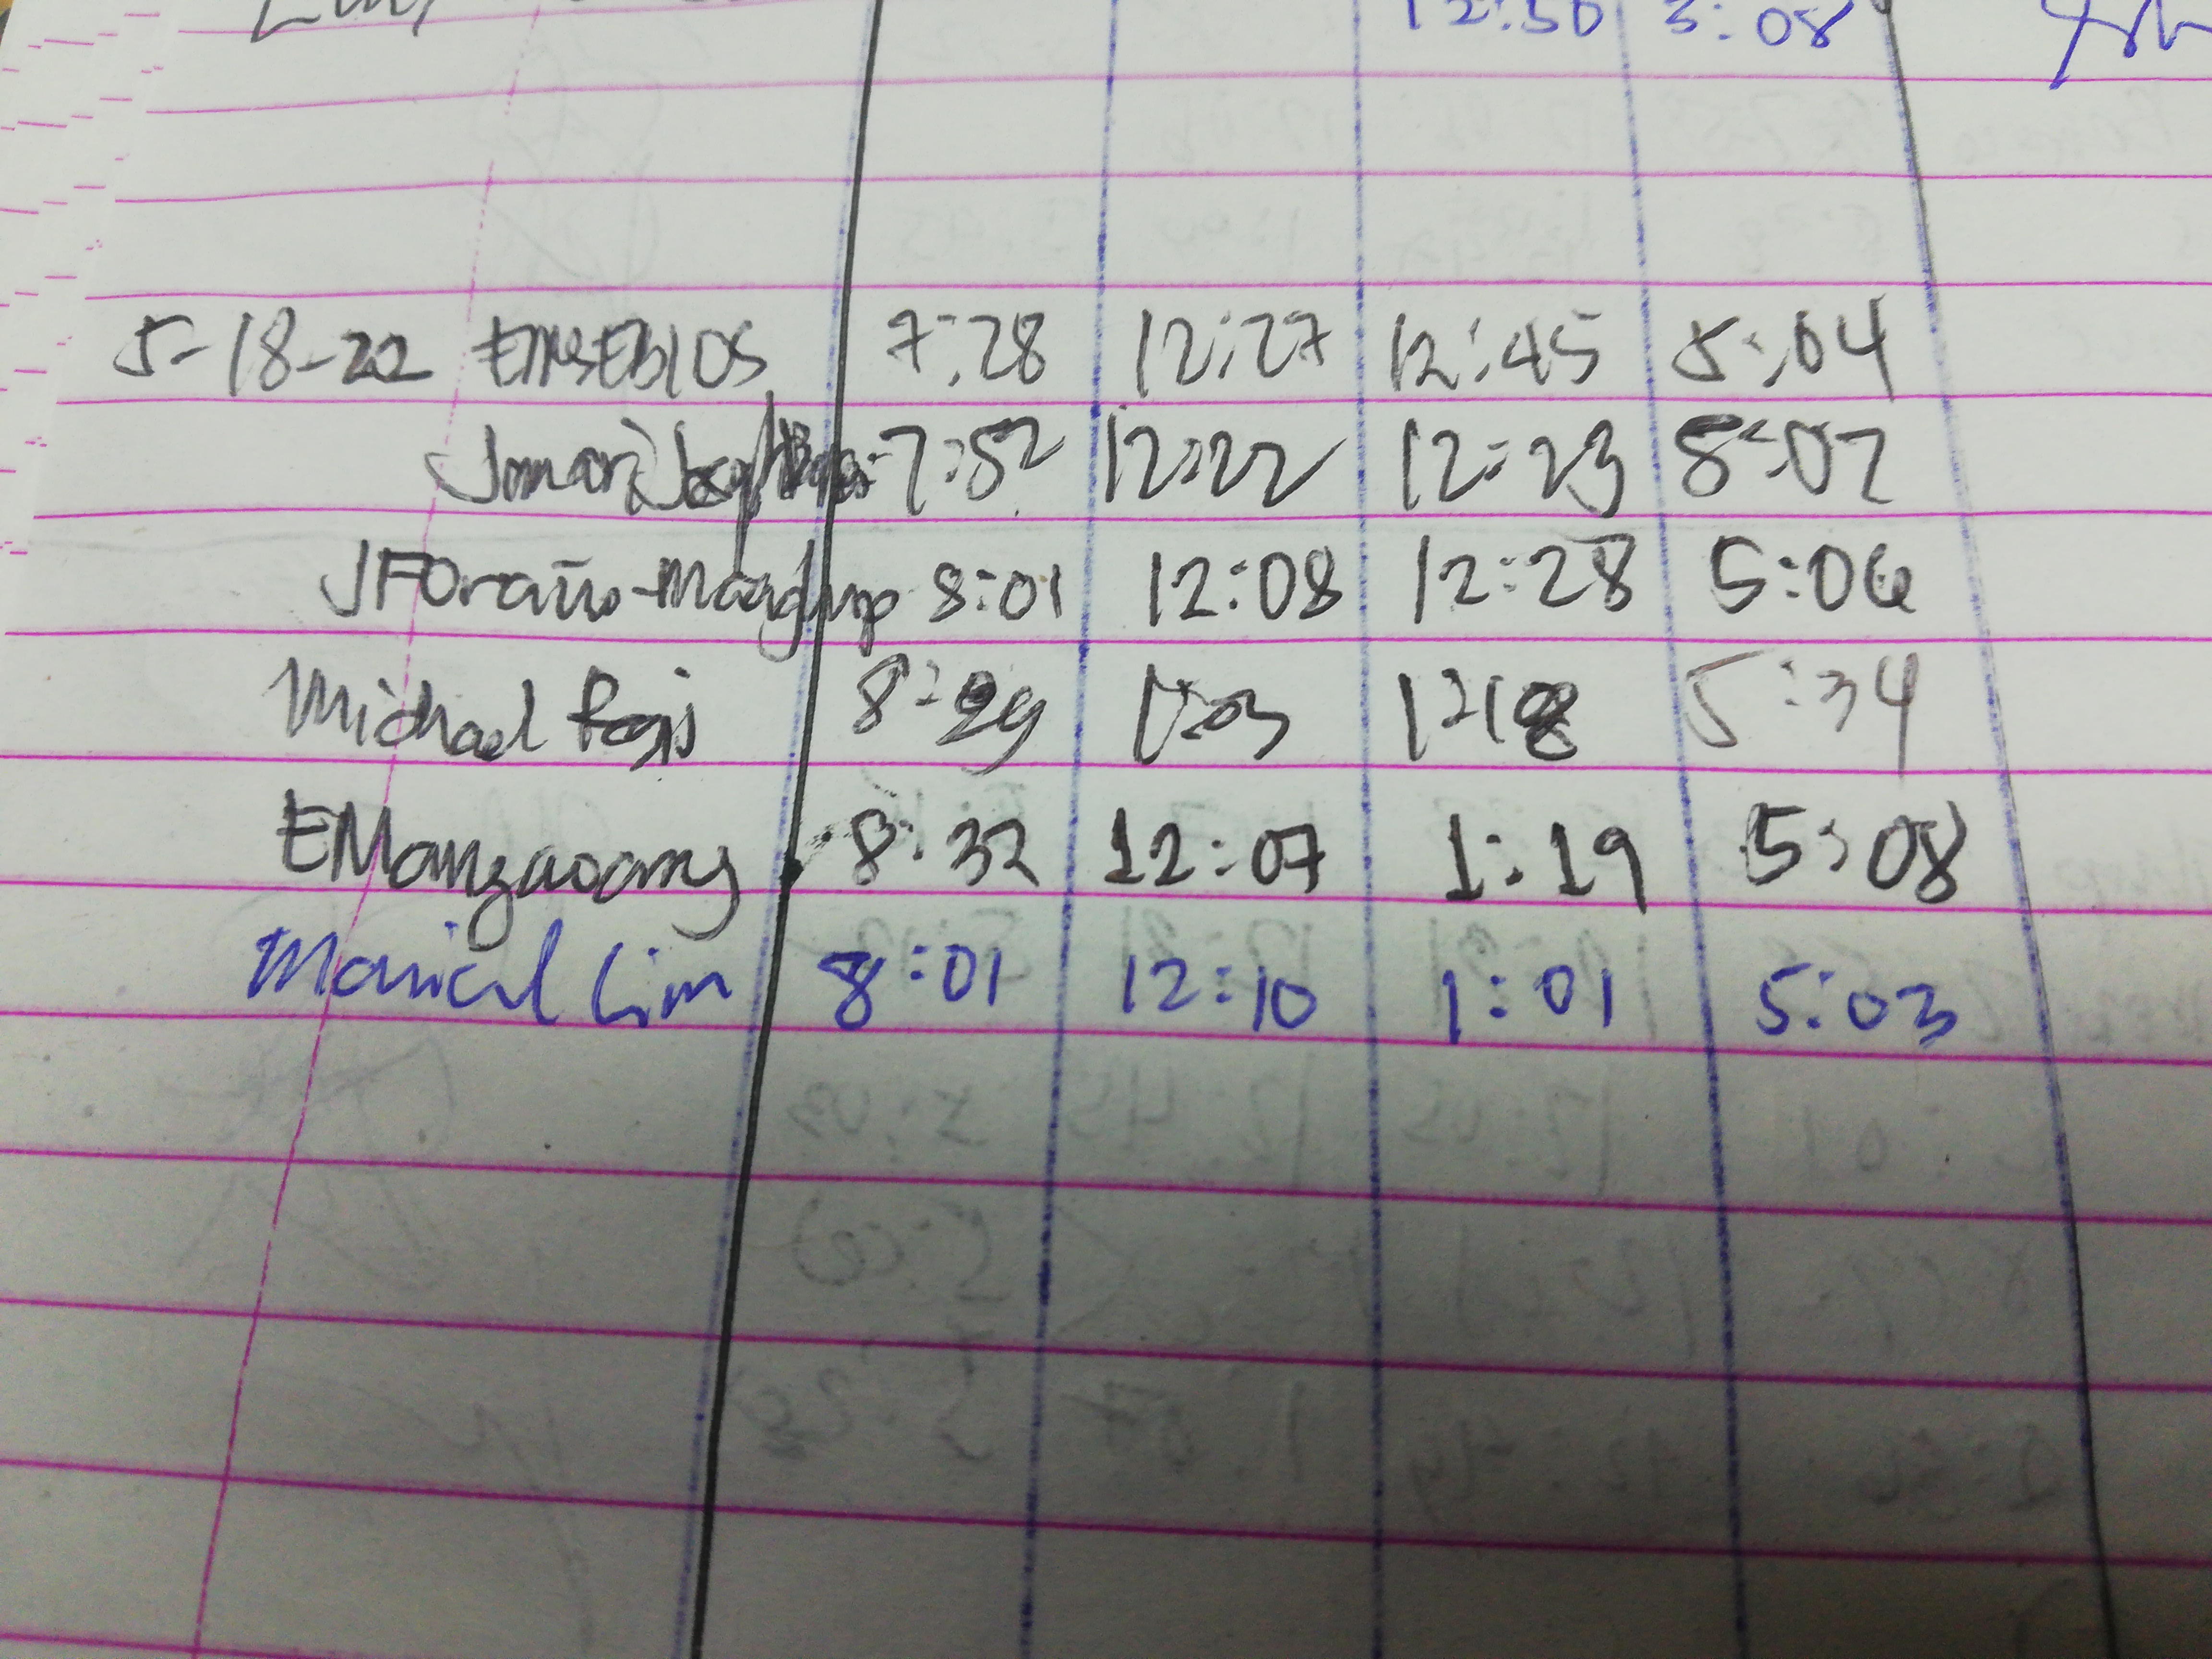 12:50 5:08
5-18-22 7:28 12:27 12:45 5:04
7:52 12:22 12:23 5:02
JFOraño-Maglup 8:01 12:08 12:28 5:06
Michael 8:29 12:03 12:18 5:34
EMangaoang 8:32 12:07 1:19 5:08
Maricel Lim 8:01 12:10 1:01 5:03